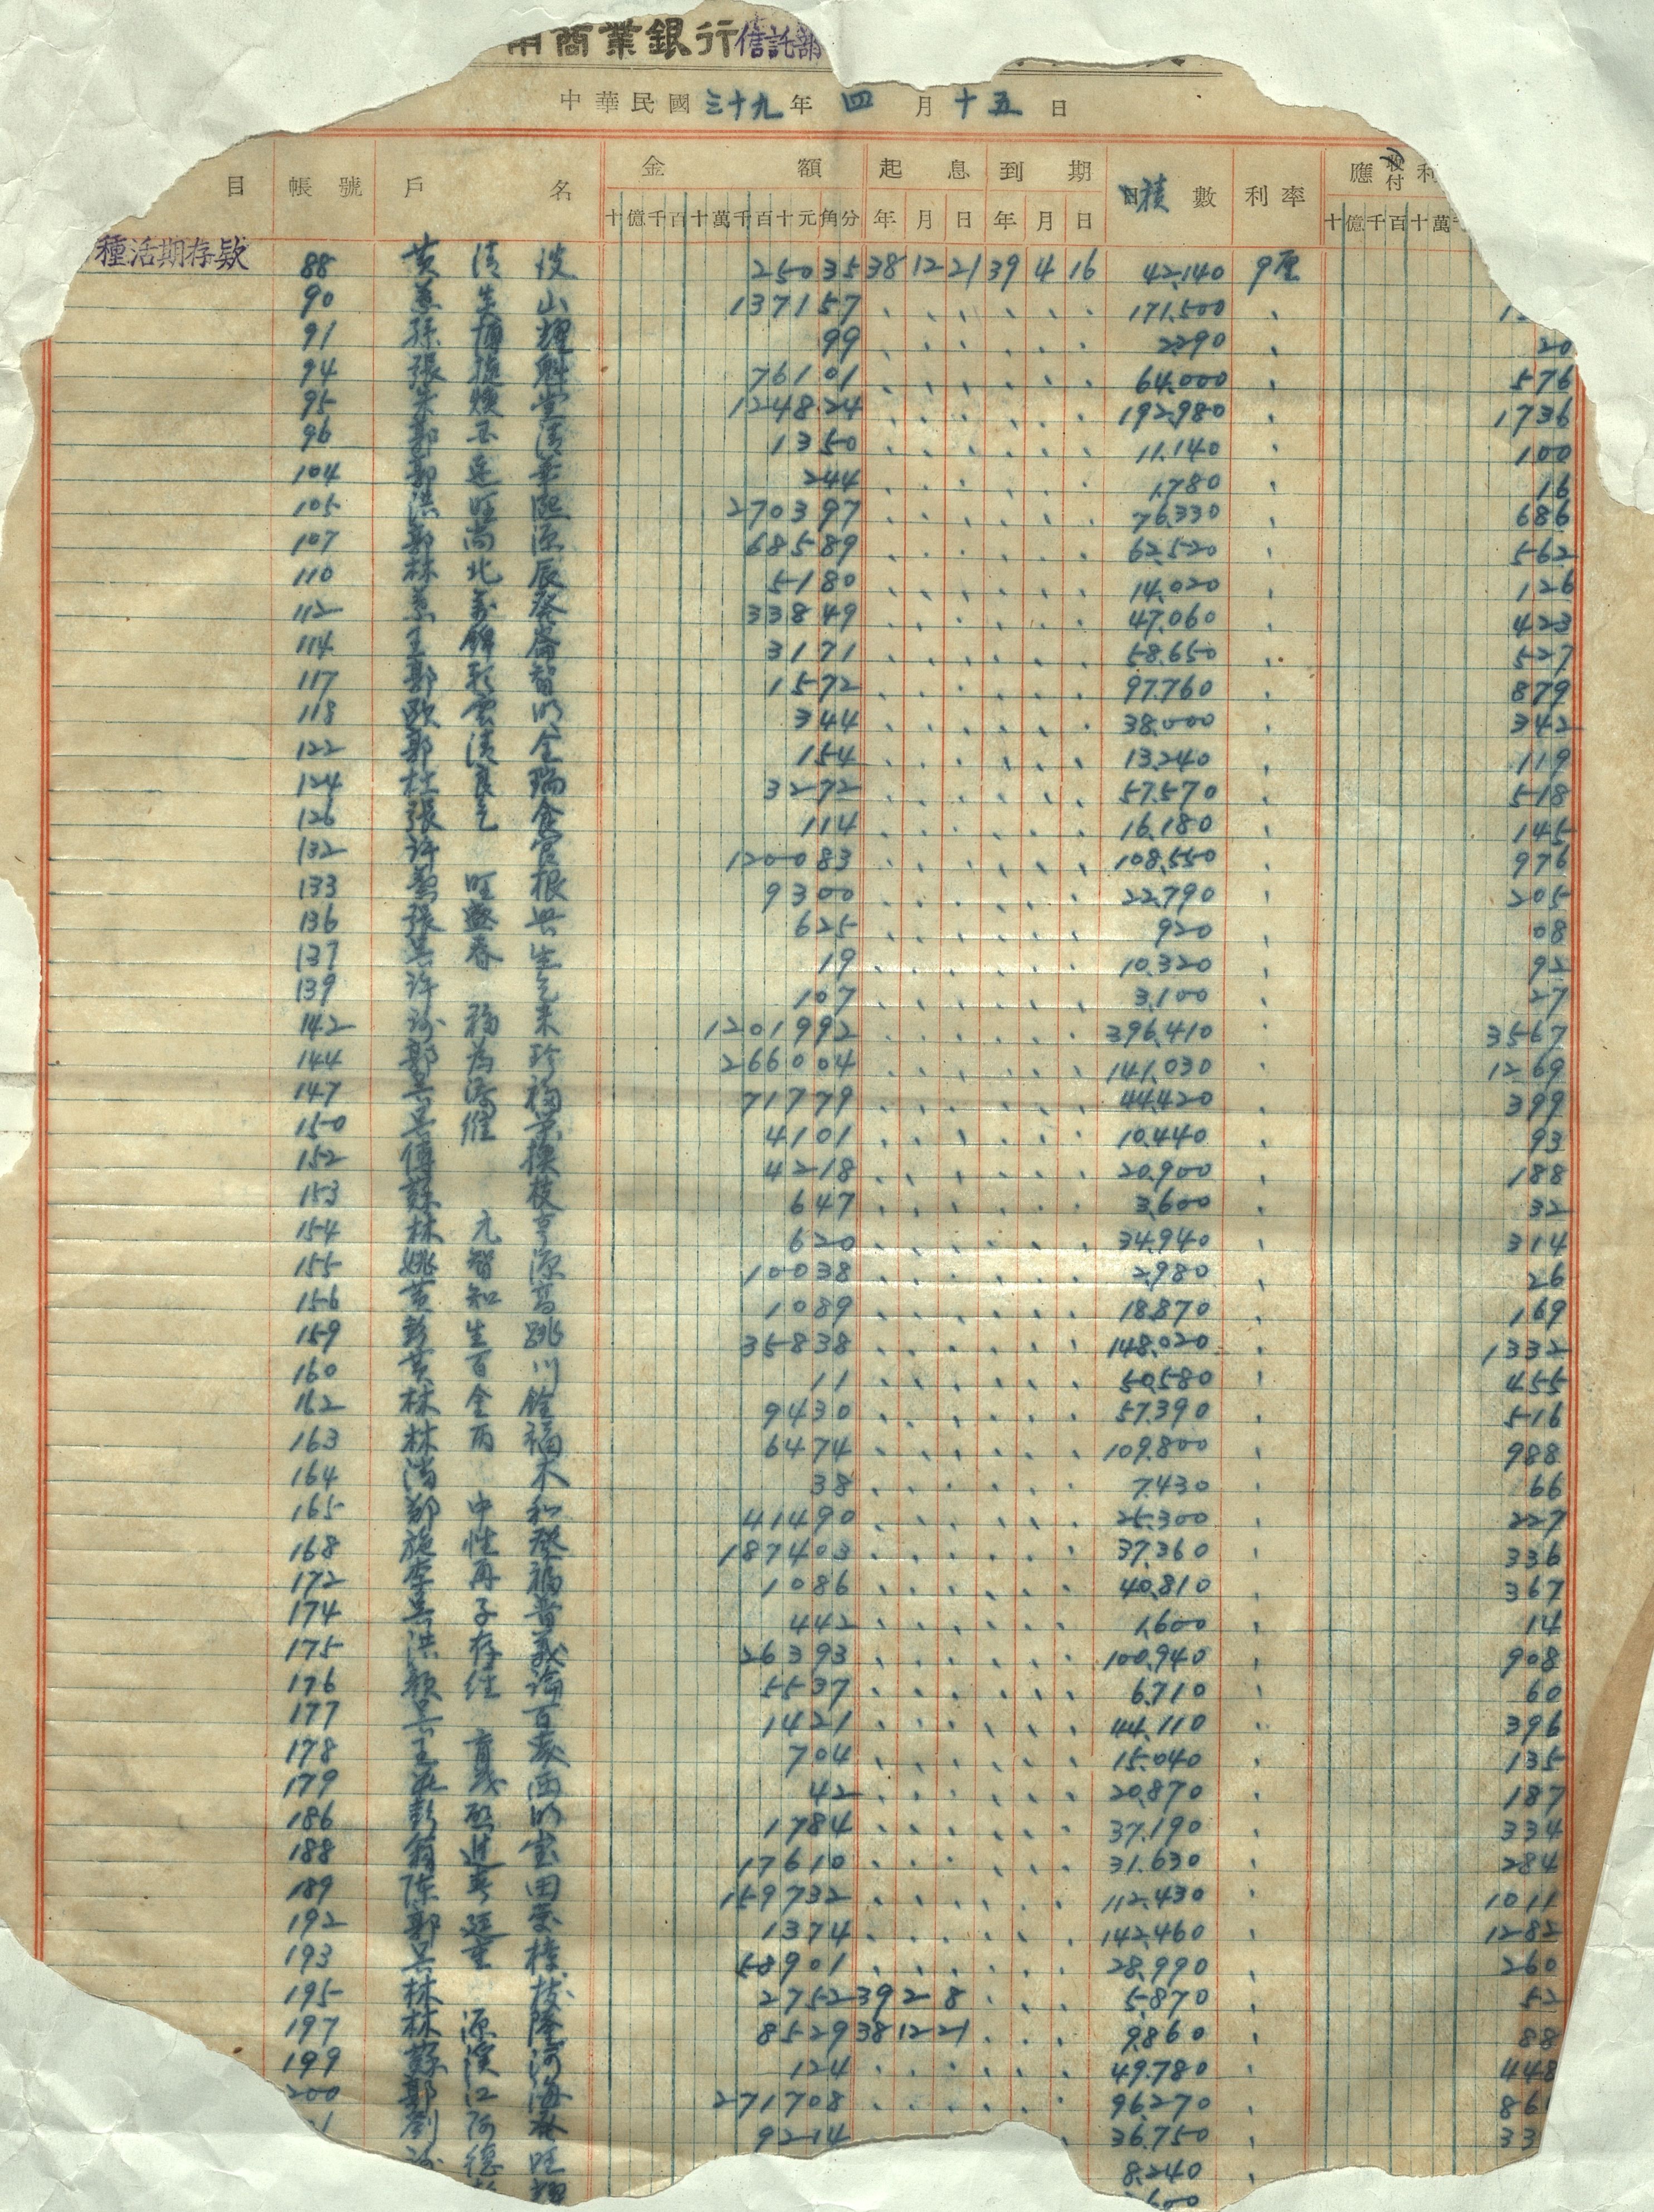 商業銀行信託部
中華民國三十九年四月十五日
目 帳號 戶名 金額 起息 到期 積數 利率 應收付利
十億千百十萬千百十元角分 年月日 年月日 十億千百十萬
種活期存欵 88 黃清 25035 38 12 21 39 4 16 42,140 9厘
90 山 137157 、 、 、 、 、 、 171,500 、
91 孫博耀 99 、 、 、 、 、 、 2,290 、 20
94 張魁 76101 、 、 、 、 、 、 64,000 、 576
95 朱煥堂 124824 、 、 、 、 、 、 192,980 、 1736
96 郭玉清 1350 、 、 、 、 、 、 11,140 、 100
104 郭 244 、 、 、 、 、 、 1,780 、 16
105 洪旺熙 270397 、 、 、 、 、 、 76,330 、 686
107 郭尚源 68589 、 、 、 、 、 、 62,520 、 562
110 林北辰 5180 、 、 、 、 、 、 14,020 、 126
112 33849 、 、 、 、 、 、 47,060 、 423
114 王錦 3171 、 、 、 、 、 、 58,650 、 527
117 郭彩智 1572 、 、 、 、 、 、 97,760 、 879
118 歐雲明 344 、 、 、 、 、 、 38,000 、 342
122 郭清全 154 、 、 、 、 、 、 13,240 、 119
124 杜良瑞 3272 、 、 、 、 、 、 57,570 、 518
126 張乞食 114 、 、 、 、 、 、 16,180 、 145
132 許宮 120083 、 、 、 、 、 、 108,550 、 976
133 旺根 9300 、 、 、 、 、 、 22,790 、 205
136 張 625 、 、 、 、 、 、 920 、 08
137 吳春生 19 、 、 、 、 、 、 10,320 、 92
139 許乞 107 、 、 、 、 、 、 3,100 、 27
142 謝福来 1201992 、 、 、 、 、 、 396,410 、 3567
144 郭為珍 266004 、 、 、 、 、 、 141,030 、 1269
147 吳添福 71779 、 、 、 、 、 、 44,420 、 399
150 吳 4101 、 、 、 、 、 、 10,440 、 93
152 傅 4218 、 、 、 、 、 、 20,900 、 188
153 蘇枝 647 、 、 、 、 、 、 3,600 、 32
154 林元亨 620 、 、 、 、 、 、 34,940 、 314
155 姚智源 10038 、 、 、 、 、 、 2,980 、 26
156 黃知高 1089 、 、 、 、 、 、 18,870 、 169
159 彭生跳 35838 、 、 、 、 、 、 148,020 、 1332
160 黃百川 11 、 、 、 、 、 、 50,580 、 455
162 林金鎗 9430 、 、 、 、 、 、 57,390 、 516
163 林丙福 6474 、 、 、 、 、 、 109,800 、 988
164 木 38 、 、 、 、 、 、 7,430 、 66
165 鄭中和 41490 、 、 、 、 、 、 25,300 、 227
168 施性發 187403 、 、 、 、 、 、 37,360 、 336
172 李再福 1086 、 、 、 、 、 、 40,810 、 367
174 吳子 442 、 、 、 、 、 、 1,600 、 14
175 洪存義 26393 、 、 、 、 、 、 100,940 、 908
176 顏經論 5537 、 、 、 、 、 、 6,710 、 60
177 吳百 1421 、 、 、 、 、 、 44,110 、 396
178 王育 704 、 、 、 、 、 、 15,040 、 135
179 茂西 42 、 、 、 、 、 、 20,870 、 187
186 彭明 1784 、 、 、 、 、 、 37,190 、 334
188 翁進 17610 、 、 、 、 、 、 31,630 、 284
189 陳田 159732 、 、 、 、 、 、 112,430 、 1011
192 郭 1374 、 、 、 、 、 、 142,460 、 1282
193 吳重 58901 、 、 、 、 、 、 28,990 、 260
195 林枝 2752 39 2 8 、 、 、 5,870 、 52
197 林源隆 8529 38 12 21 、 、 、 9,860 、 88
199 蘇河 124 、 、 、 、 、 、 49,780 、 448
200 郭江海 271708 、 、 、 、 、 、 96,270 、 86
1 劉阿發 9214 、 36,750 、 33
謝德旺 8,240 、
輝 600